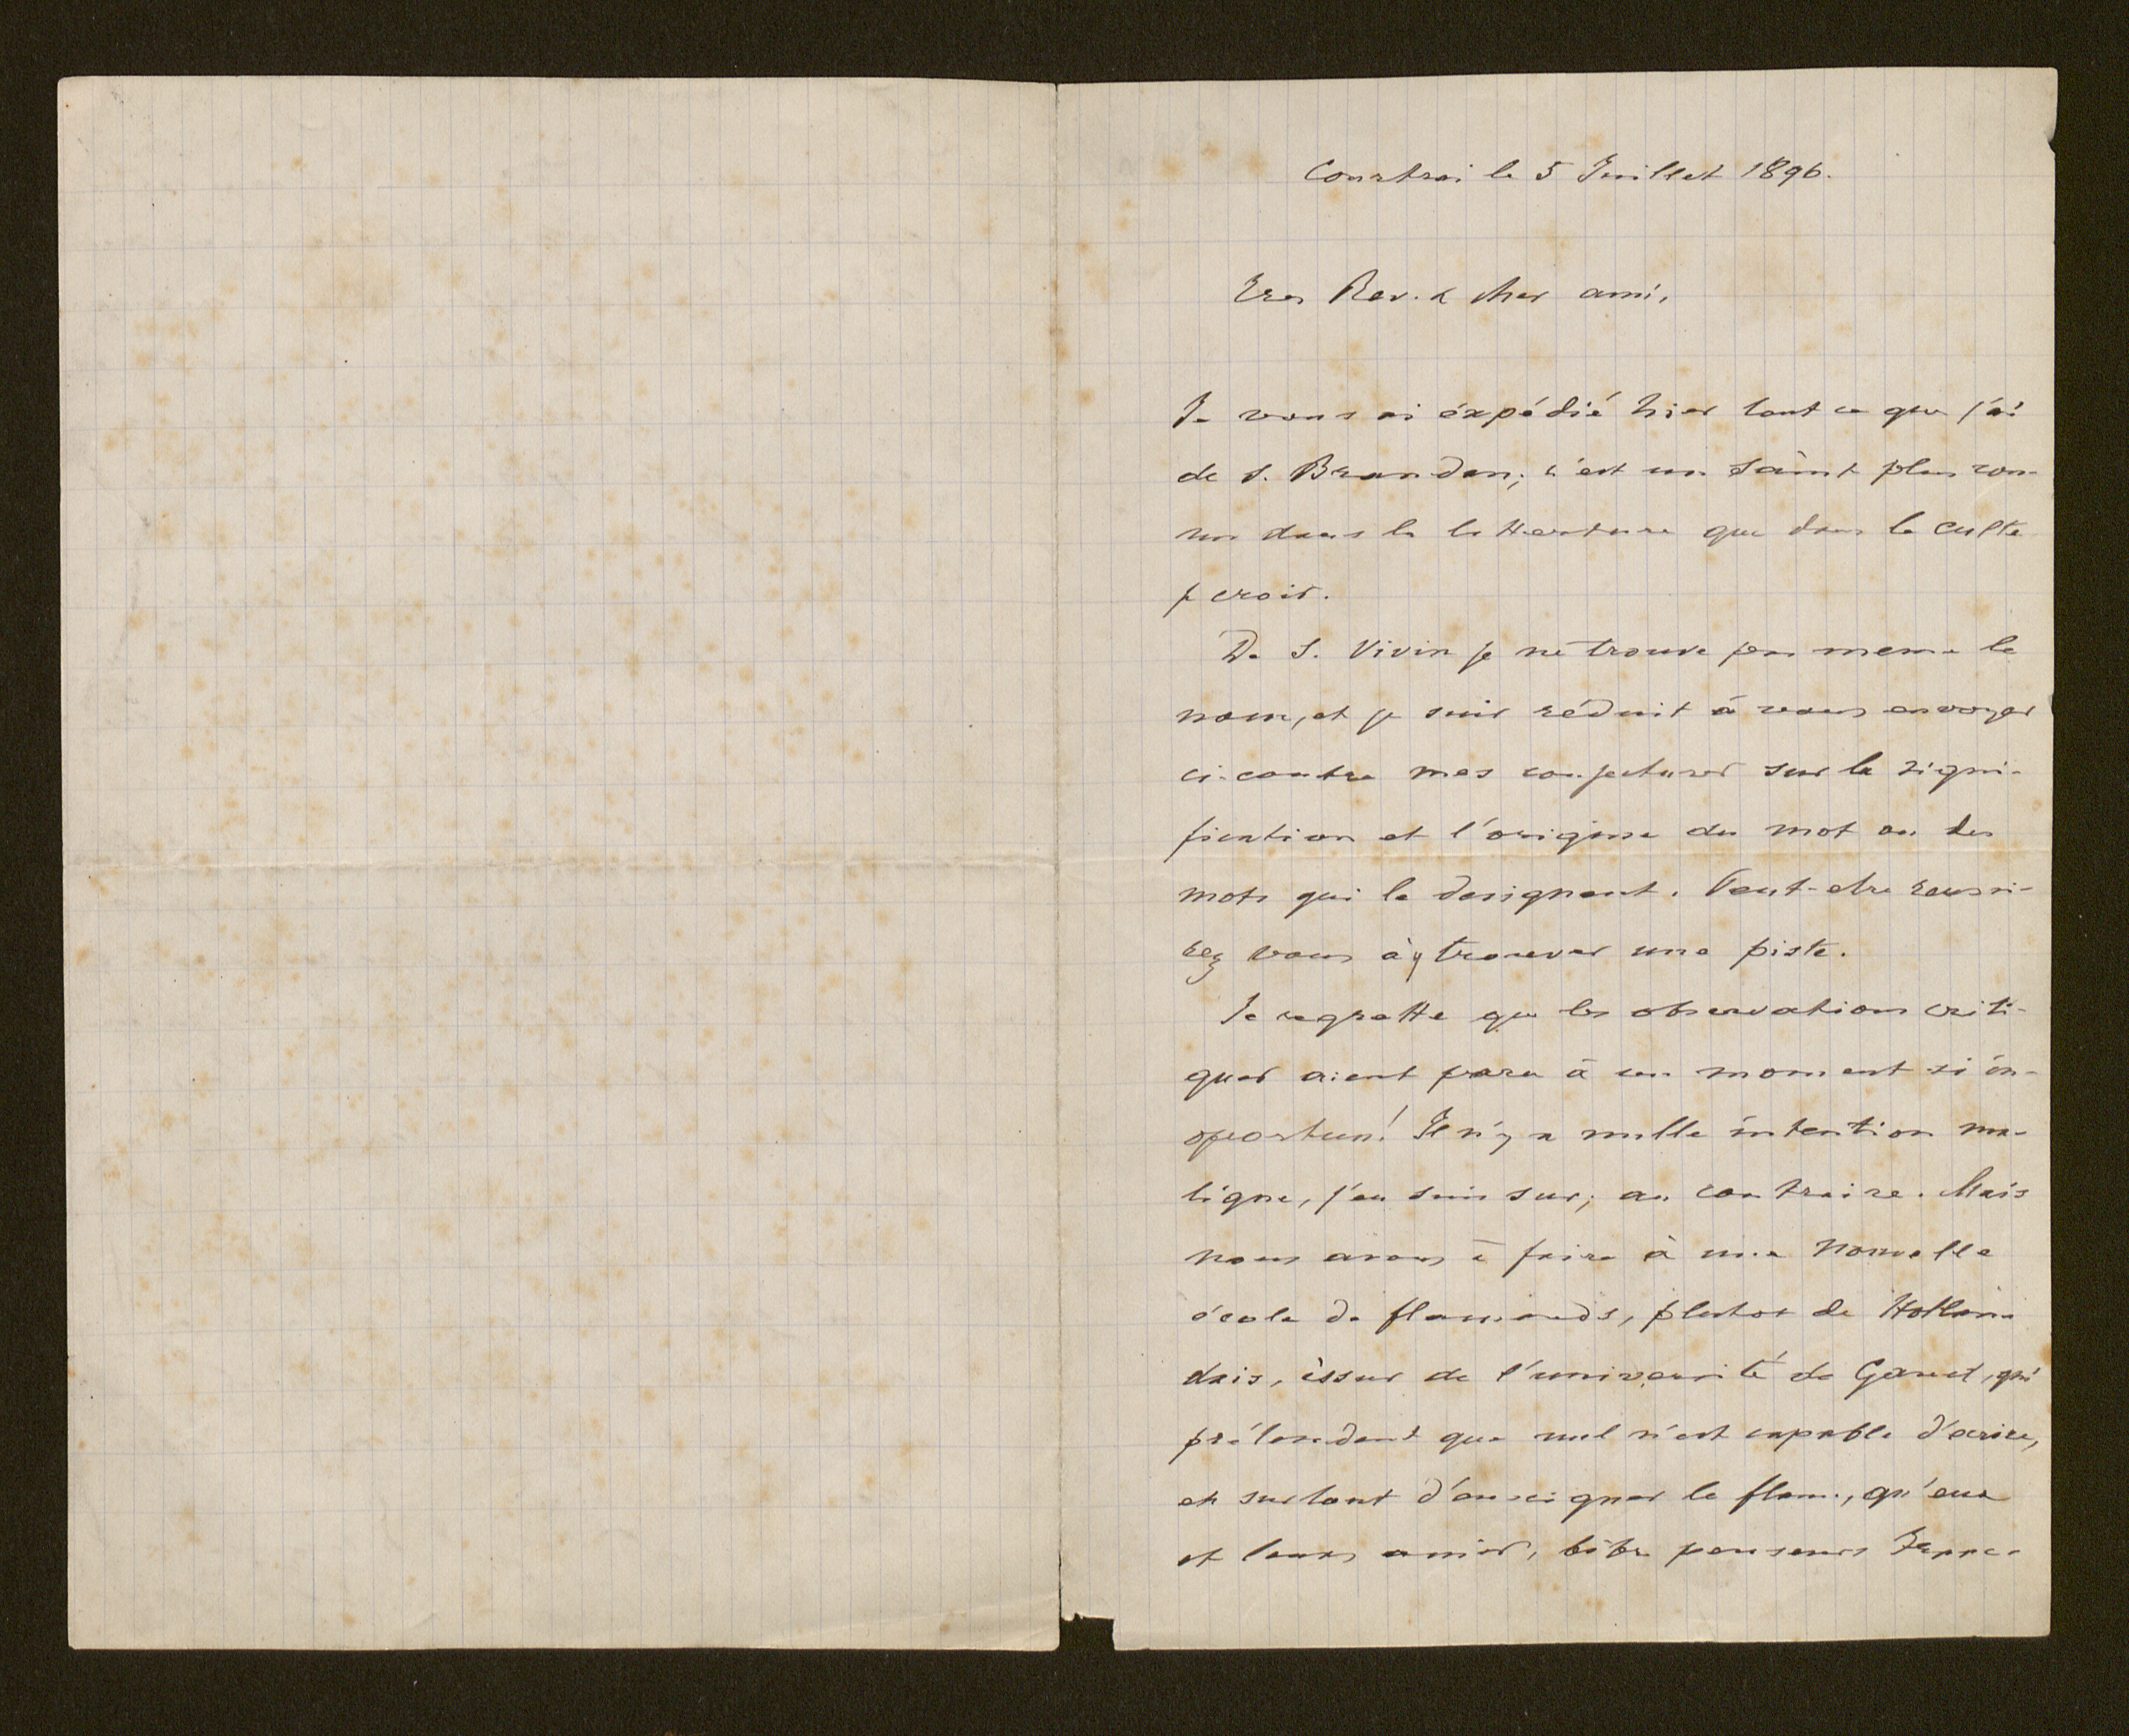 Courtrai le 5 Juillet 1896.
Tres Rev. & cher ami,
Je vous ai éxpédié hier tout ce que j'ai
de S. Brandan; c'est un saint plus con-
nu dans la litterature que dans le culte
je crois.
De S. Vivin je ne trouve pas meme le
nom, et je suis réduit à vous envoyer
ci-contre mes conjectures sur la signi-
fication et l'origine du mot ou des
mots qui le designent. Peut-etre reussi-
rez vous à y trouver une piste.
Je regrette que les observations criti-
ques aient paru à un moment si in-
oportun! Il n'y a nulle intention ma-
ligne, j'en suis sur; au contraire. Mais
nous avons à faire à une nouvelle
école de flamands, plutot de Hollan-
dais, issus de l'université de Gand, qui
prétendent que nul n'est capable d'ecrire,
et surtout d'enseigner le flam., qu'eux
et leurs amis, libre penseurs